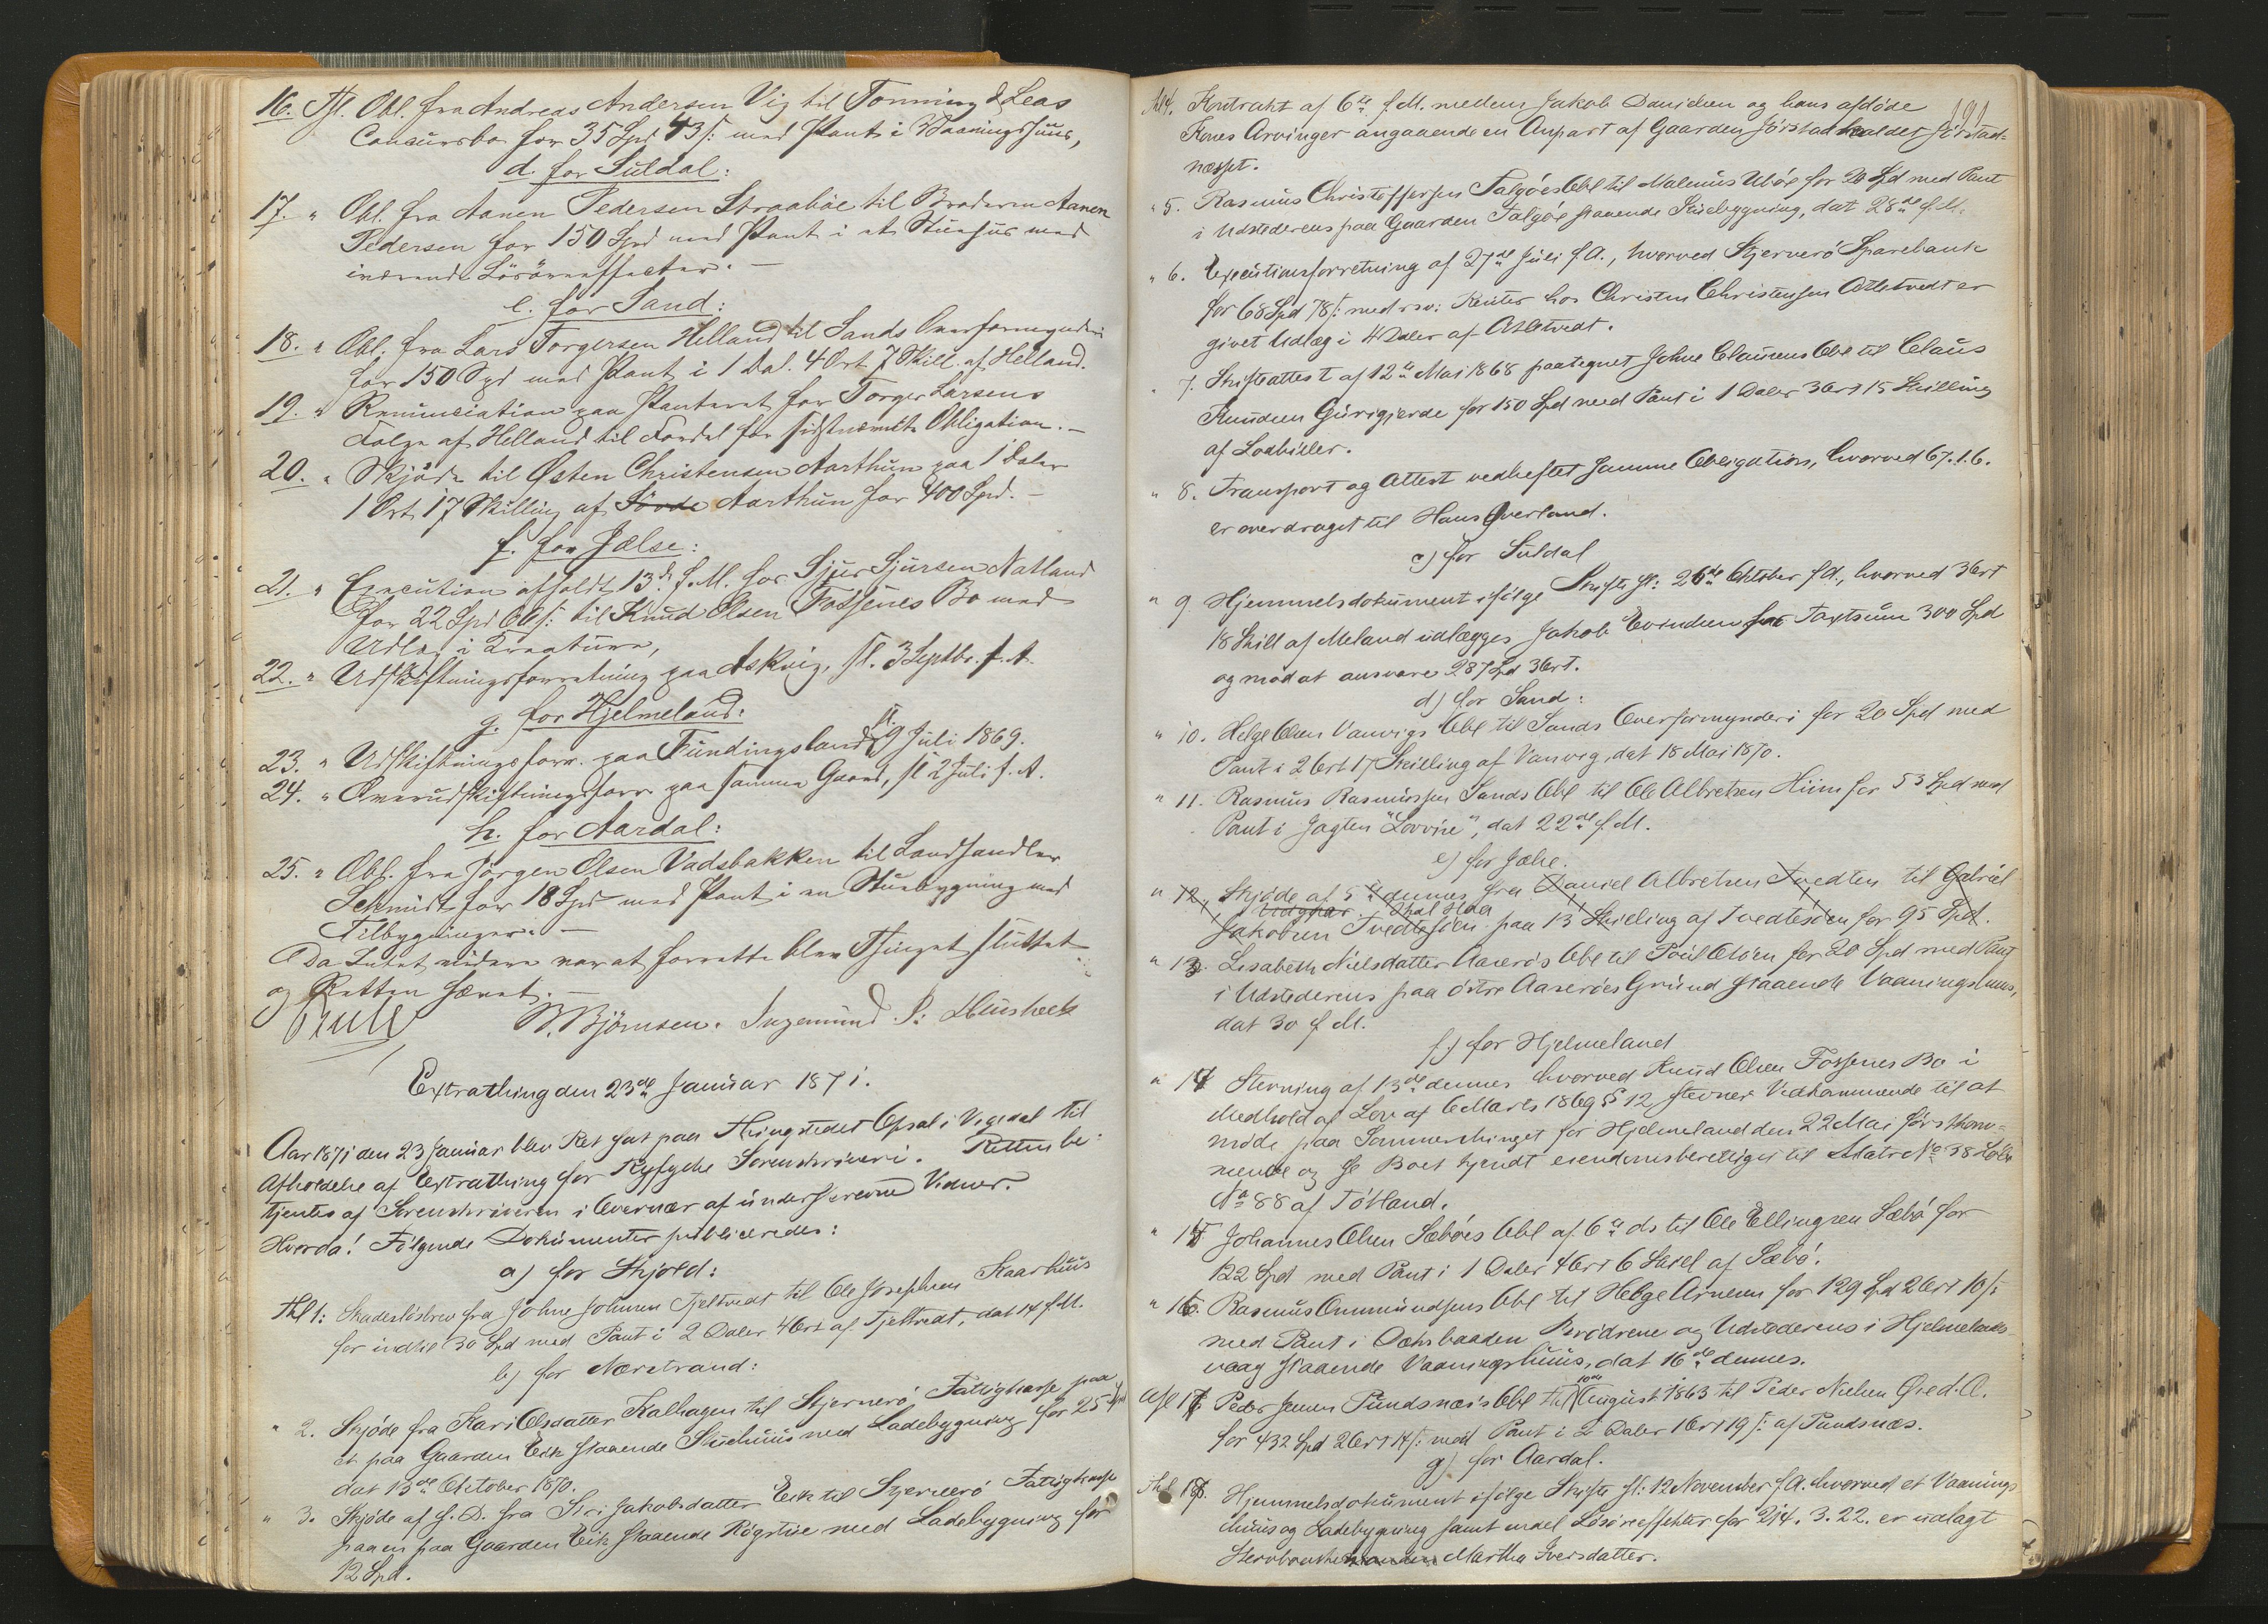 16. Tl. Obl. fra Andreas Andersen Vig til Tonning & Leas
Concursbo for 35 Spd 43 s: med Pant i Vaaningshuus,
d. for Suldal:
17. " Obl. fra Aanen Pedersen Straabøe til Broderen Aanen
Pedersen for 150 Spd med Pant i et Stuehus med
iværende Løsøreeffecter. —
e. for Sand:
18. " Obl. fra Lars Torgersen Helland til Sands Overformynderi
for 150 Spd med Pant i 1 Dal. 4 Ort 7 Skill af Helland.
19. " Renunciation paa Panteret for Torger Larsens
Folge af Helland til Fordel for sidstnævnte Obligation. —
20. " Skjøde til Østen Christensen Aarthun paa 1 Daler
1 Ort 17 Skilling af Aarthun for 400 Spd. —
f. for Jælse:
21. " Execution afholdt 13de f. M. hos Sjur Sjursen Natland
for 22 Spd 66 s: til Knud Olsen Fossenes Bo med
Udlæg i Creature,
22. " Udskiftningsforretning paa Askvig, sl. 3 Septbr. f. A.
g. for Hjelmeland:
23. " Udskiftningsforr. paa Fundingsland sl. 9 Juli 1869.
24. " Overudskiftningsforr paa samme Gaard, sl 2 Juli f. A.
h. for Aardal:
25. " Obl. fra Jørgen Olsen Vadsbakken til Landhandler
Schmidt for 18 Spd med Pant i en Stuebygning med
Tilbygninger. —
Da Intet videre var at forrette blev Thinget sluttet
og Retten hævet. —
B. Bjørnsen. Ingemund S:
Extrathing den 23de Januar 1871.
Aar 1871 den 23 Januar blev Ret sat paa Thingstedet Opsal i Vigedal til
Afholdelse af Extrathing for Ryfylke Sorenskriveri. Retten be-
tjentes af Sorenskriveren i Overvær af underskrevne Vidner.
Hvorda! Følgende Dokumenter publiceredes:
a) for Skjold:
Thl 1: Skadesløsbrev fra Johne Johnsen Tjeltvedt til Ole Josephsen Skaarhuus
for indtil 30 Spd med Pant i 2 Daler 4 Ort af Tjeltvedt, dat 14 f. M.
b) for Nærstrand:
" 2. Skjøde fra Kari Olsdatter Kalhagen til Stjernerø Fattigkasse paa
et paa Gaarden Eik staaende Stuehuus med Ladebygning for 25 Spd
dat 13de Oktober 1870.
" 3. Skjøde af s. D. fra Siri Jakobsdatter Eik til Stjernerø Fattigkasse
paa en paa Gaarden Eik staaende Røgstue med Ladebygning for
12 Spd.
191
Thl 4. Kontrakt af 6te f. M. mellem Jakob Danielsen og hans afdøde
Kones Arvinger angaaende en Anpart af Gaarden Jørstad kaldet Jørstad-
næsset.
" 5. Rasmus Christoffersen Talgøes Obl til Malenius Ubøe for 20 Spd med Pant
i Udstederens paa Gaarden Talgøe staaende Stuebygning, dat 28de f. M.
" 6. Executionsforretning af 27de Juli f. A., hvorved Stjernerø Sparebank
for 68 Spd 78 s: med Renter hos Christen Christensen Atletvedt er
givet Udlæg i 4 Daler af Atletvedt.
" 7. Skifteattest af 12te Mai 1868 paategnet Johne Clausens Obl til Claus
Knudsen Gurigjerde for 150 Spd med Pant i 1 Daler 3 Ort 15 Skilling
af Lodhiller.
" 8. Transport og Attest vedheftet samme Obligation, hvorved 67.1.6.
er overdraget til Hans Qverland.
c) for Suldal
" 9 Hjemmelsdokument ifølge Skifte sl: 26de Oktober f. A., hvorved 3 Ort
18 Skill af Meland udlægges Jakob Evindsen for Taxtsum 300 Spd
og mod at ansvare 287 Spd 3 Ort.
d) for Sand:
" 10. Helge Olsen Vanvigs Obl til Sands Overformynderi for 20 Spd med
Pant i 2 Ort 17 Skilling af Vanvig, dat 18 Mai 1870.
" 11. Rasmus Rasmussen Sands Obl til Ole Albretsen Hiim for 53 Spd med
Pant i Jagten "Lovvise", dat 22de f. M.
e) for Jælse.
" 12, Skjøde af 5te dennes fra Daniel Albretsen Tvedten til Gabriel
Udgaar. Skal staa
Jakobsen Tvedtesøen paa 13 Skilling af Tvedtesøen for 95 Spd.
" 13. Lisabeth Nielsdatter Aaserøs Obl til Poul Olsøen for 20 Spd med Pant
i Udstederens paa østre Aaserøes Grund staaende Vaaningshuus,
dat 30 f. M.
f.) for Hjelmeland
" 14 Stevning af 13de dennes hvorved Knud Olsen Fossenes Bo i
Medhold af Lov af 6 Marts 1869 § 12 stevner Vedkommende til at
møde paa Sommerthinget for Hjelmeland den 22 Mai førstkom-
mende og se Boet kjendt eiendomsberettiget til Matr No 38 Løbe
No 88 af Tøtland.
" 15 Johannes Olsen Sæbøes Obl af 6te ds til Ole Ellingsen Sæbø for
122 Spd med Pant i 1 Daler 4 Ort 6 Skill af Sæbø.
" 16. Rasmus Ommundsens Obl til Helge Arnesen for 129 Spd 2 Ort 10 s:
med Pant i Dæksbaaden Brødrene og Udstederens i Hjelmelands-
vaag staaende Vaaningshuus, dat 16de dennes.
Afl 17 Peder Jensen Pundsnæs's Obl 10de August 1863 til Peder Nielsen Qved. A.
for 432 Spd 2 Ort 14 s: med Pant i 2 Daler 1 Ort 19 s: af Pundsnæs.
g) for Aardal.
Thl 18. Hjemmelsdokument ifølge Skifte sl: 12 November f. A. hvorved et Vaanings-
huus og Ladebygning samt endel Løsøreeffekter for 214. 3. 22. er udlagt
Martha Iversdatter.